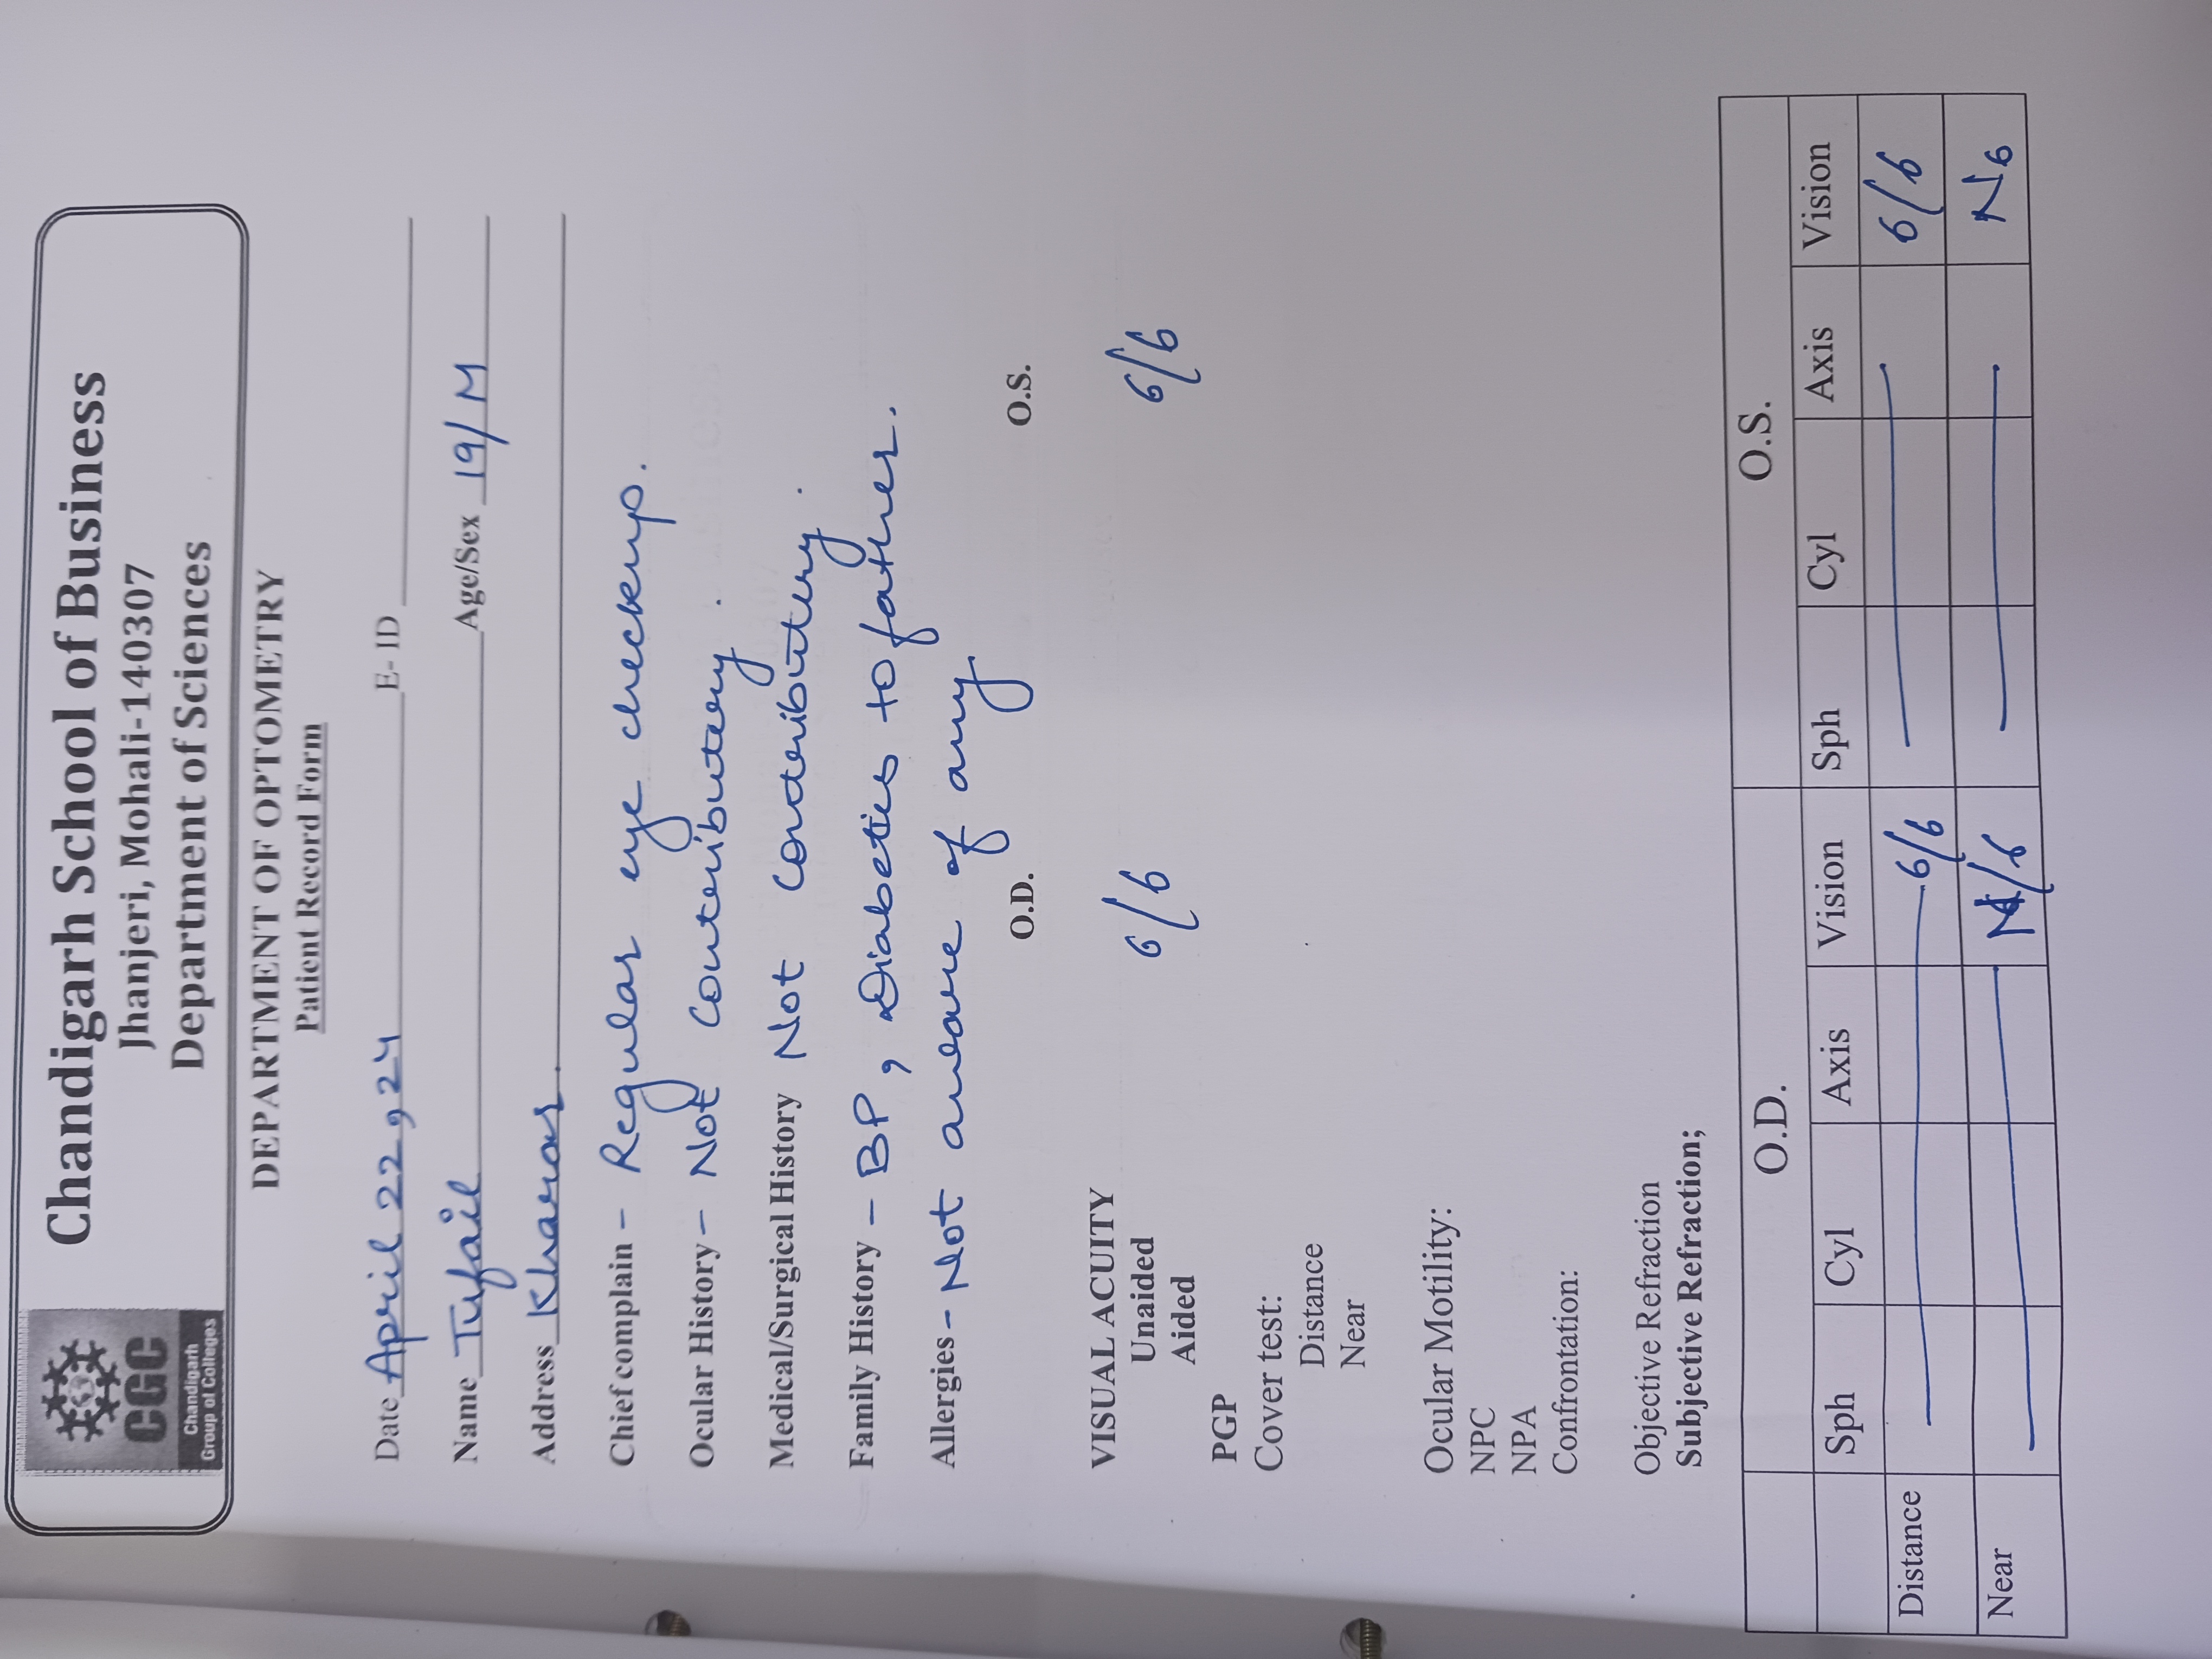 CGC
Chandigarh
Group of Colleges
Chandigarh School of Business
Jhanjeri, Mohali-140307
Department of Sciences
DEPARTMENT OF OPTOMETRY
Patient Record Form
Date April 22, 24 E- ID
Name Tufail Age/Sex 19/M
Address Kharar.
Chief complain – Regular eye checkup.
Ocular History – Not Contributery.
Medical/Surgical History Not Contributery.
Family History – BP, Diabetics to father.
Allergies – Not aware of any.
O.D. O.S.
VISUAL ACUITY
Unaided 6/6 6/6
Aided
PGP
Cover test:
Distance
Near
Ocular Motility:
NPC
NPA
Confrontation:
Objective Refraction
Subjective Refraction;
O.D. O.S.
Sph Cyl Axis Vision Sph Cyl Axis Vision
Distance 6/6 6/6
Near N/6 N6